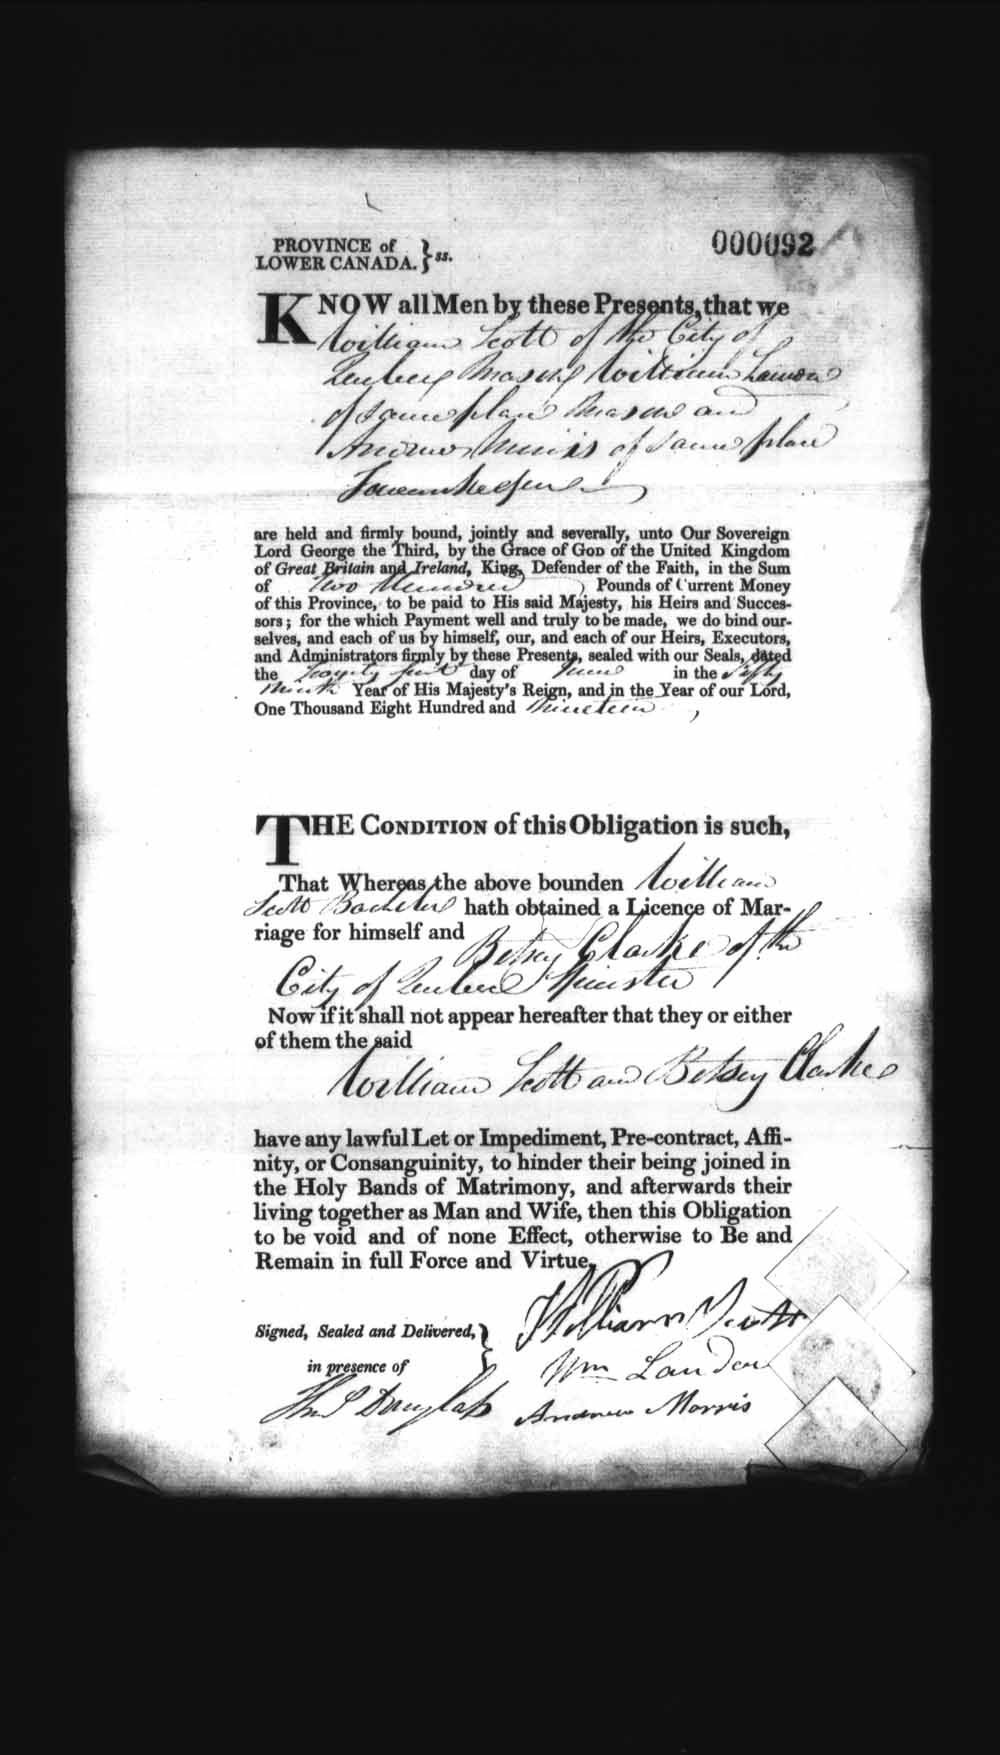 PROVINCE of
LOWER CANADA. } ss.
000092
KNOW all Men by these Presents, that we
William Scott of the City of
Quebec Mason, William
of same place Mason and
Andrew Morris of same place
Tavernkeeper
are held and firmly bound, jointly and severally, unto Our Sovereign
Lord George the Third, by the Grace of GOD of the United Kingdom
of Great Britain and Ireland, King, Defender of the Faith, in the Sum
of Two Hundred Pounds of Current Money
of this Province, to be paid to His said Majesty, his Heirs and Succes-
sors; for the which Payment well and truly to be made, we do bind our-
selves, and each of us by himself, our, and each of our Heirs, Executors,
and Administrators firmly by these Presents, sealed with our Seals, dated
the Twenty first day of June in the Fifty
Ninth Year of His Majesty's Reign, and in the Year of our Lord,
One Thousand Eight Hundred and Nineteen,
THE CONDITION of this Obligation is such,
That Whereas the above bounden William
Scott Bachelor hath obtained a Licence of Mar-
riage for himself and Betsey Clarke of the
City of Quebec Spinster
Now if it shall not appear hereafter that they or either
of them the said
William Scott and Betsey Clarke
have any lawful Let or Impediment, Pre-contract, Affi-
nity, or Consanguinity, to hinder their being joined in
the Holy Bands of Matrimony, and afterwards their
living together as Man and Wife, then this Obligation
to be void and of none Effect, otherwise to Be and
Remain in full Force and Virtue.
William Scott
Signed, Sealed and Delivered, }
in presence of
Wm
Douglass
Andrew Morris